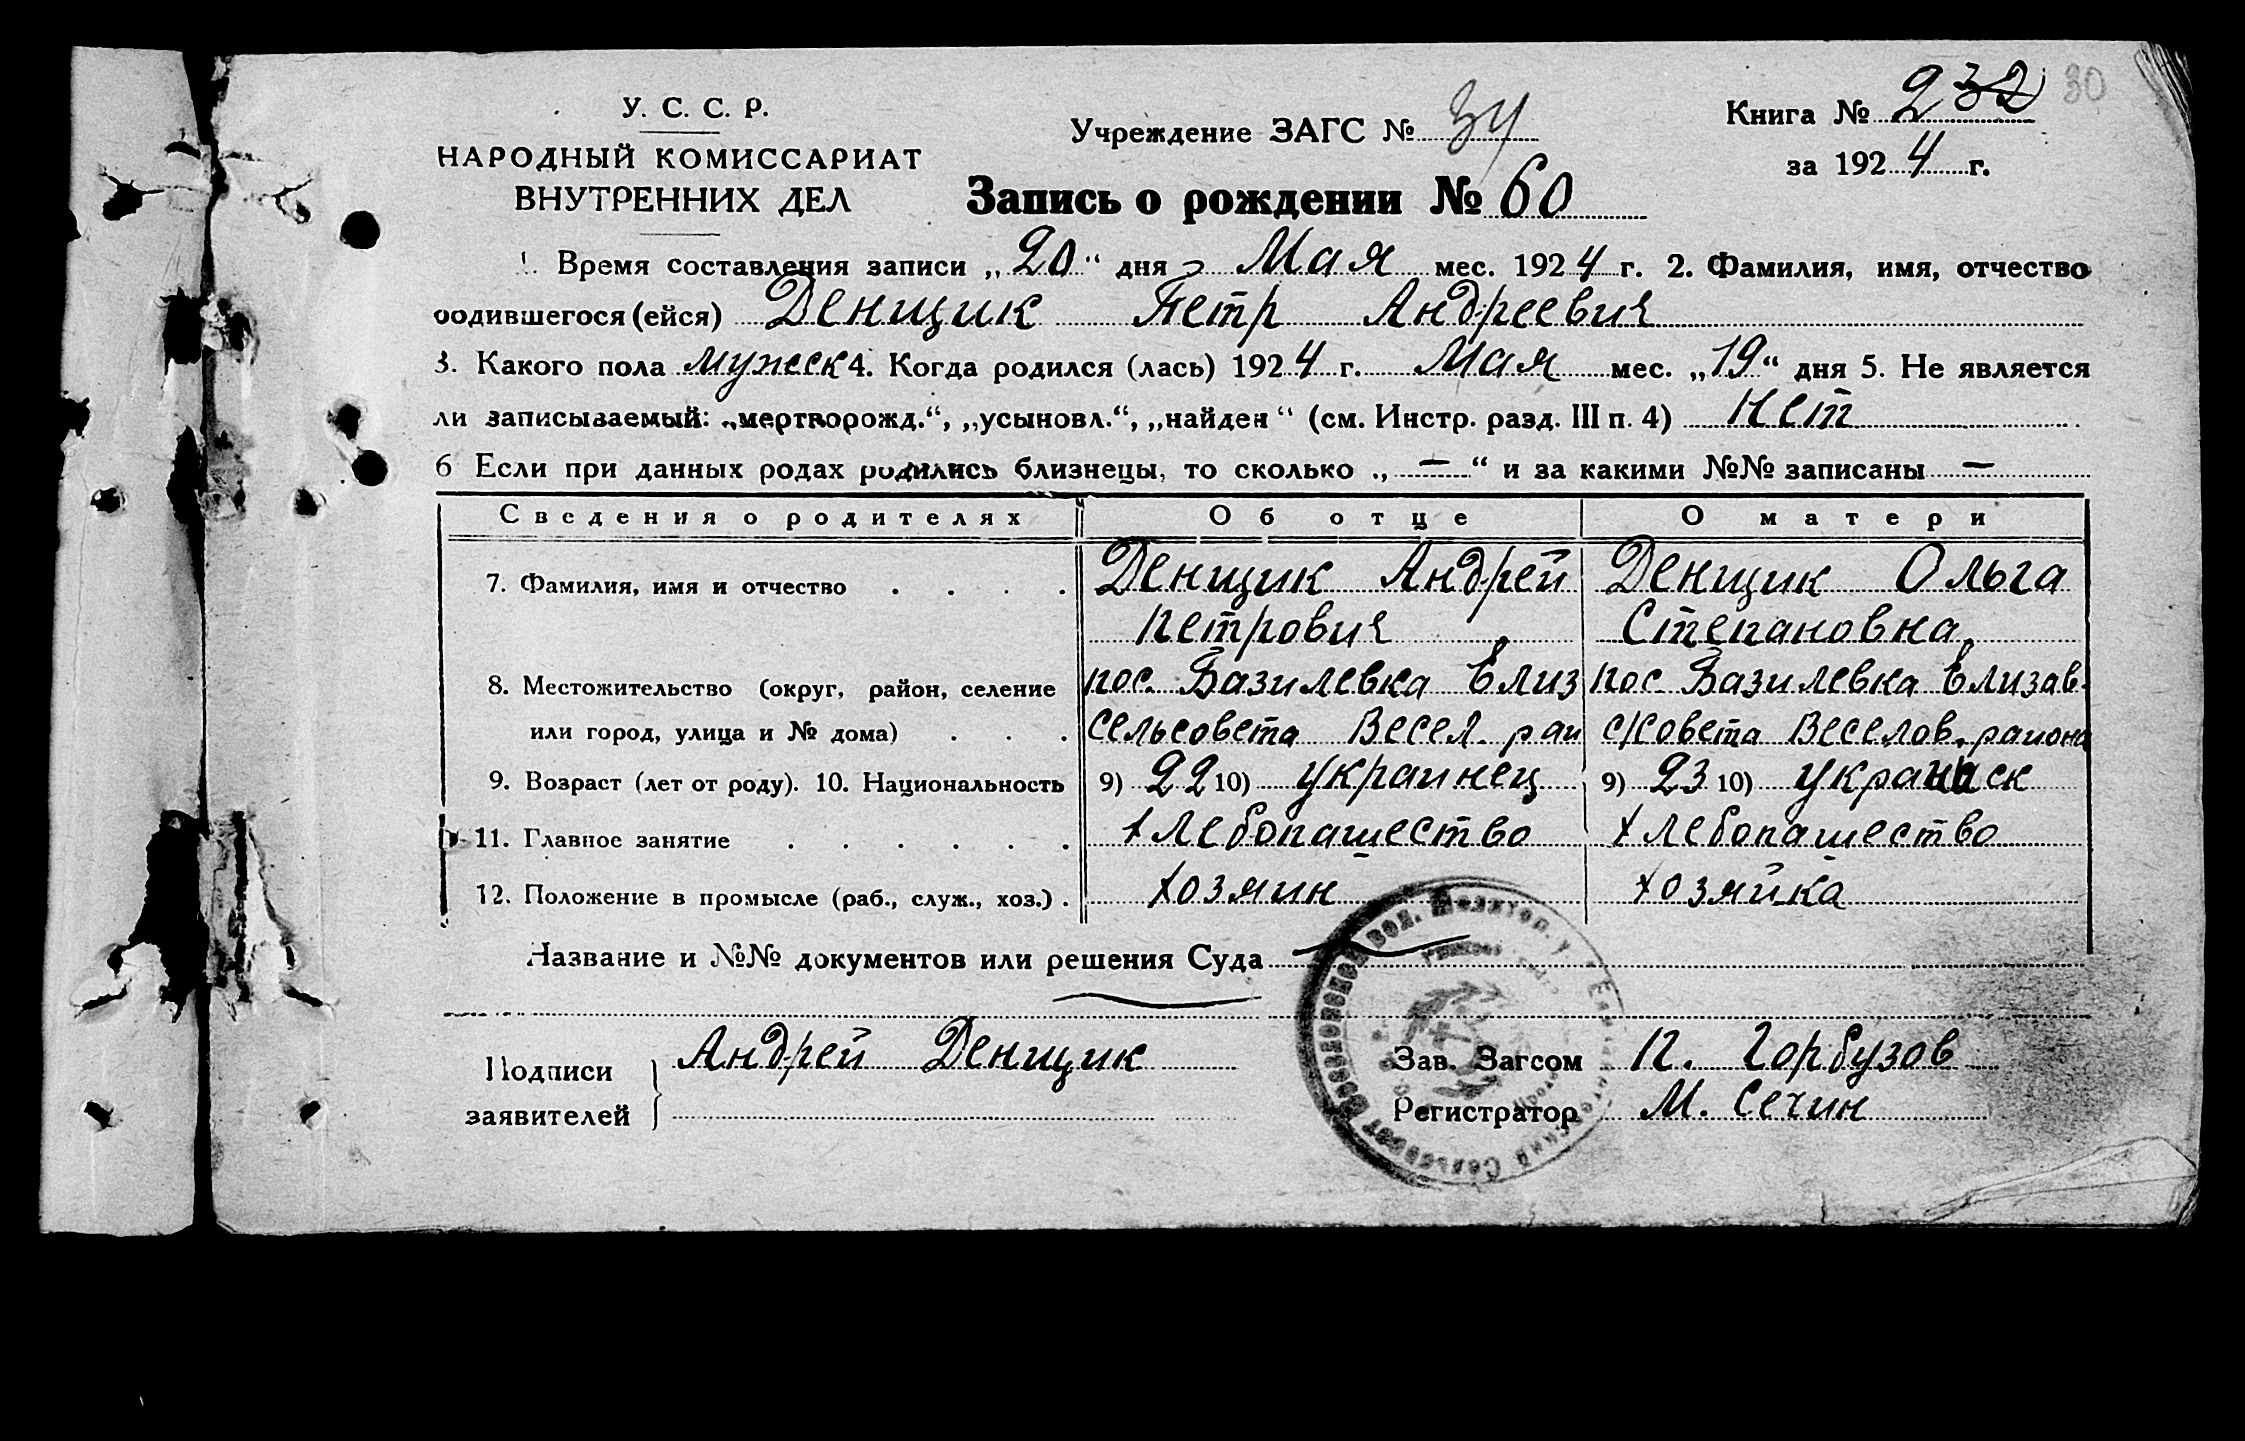 У. С. С. Р.
НАРОДНЫЙ КОМИССАРИАТ
ВНУТРЕННИХ ДЕЛ
Учреждение ЗАГС № 34
Книга № 232 30
за 1924 г.
Запись о рождении № 60
1. Время составления записи „20“ дня Мая мес. 1924 г. 2. Фамилия, имя, отчество
родившегося (ейся) Денщик Петр Андреевич
3. Какого пола мужеск 4. Когда родился (лась) 1924 г. Мая мес. „19“ дня 5. Не является
ли записываемый: „мертворожд.“, „усыновл.“, „найден“ (см. Инстр. разд. III п. 4) нет
6 Если при данных родах родились близнецы, то сколько „—“ и за какими №№ записаны —
Сведения о родителях Об отце О матери
7. Фамилия, имя и отчество . . . . Денщик Андрей Денщик Ольга
Петрович Степановна
8. Местожительство (округ, район, селение пос. Базилевка Елиз пос. Базилевка Елизав.
или город, улица и № дома) . . . сельсовета Весел. рай с/совета Веселов. района
9. Возраст (лет от роду). 10. Национальность 9) 22 10) украинец 9) 23 10) украинск
11. Главное занятие . . . . . . хлебопашество хлебопашество
12. Положение в промысле (раб., служ., хоз.) . хозяин хозяйка
Название и №№ документов или решения Суда —
Подписи заявителей } Андрей Денщик
Зав. Загсом П. Горбузов
Регистратор М. Сечин